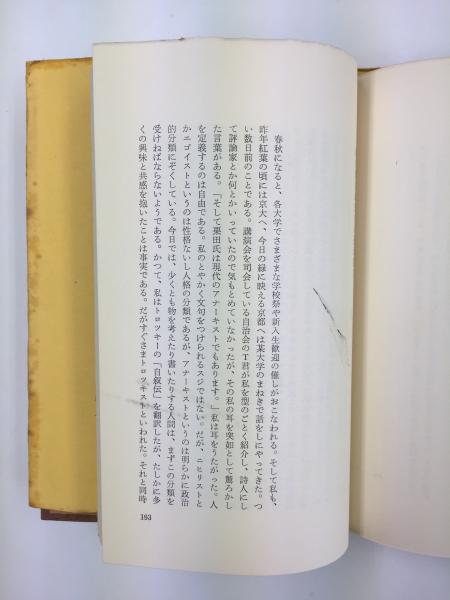 春秋になると、各大学でさまざまな学校祭や新入生歓迎の催しがおこなわれる。そして私も、
昨年紅葉の頃には京大へ、今日の緑に映える京都へは某大学のまねきで話をしにやってきた。つ
い数日前のことである。講演会を司会している自治会のT君が私を型のごとく紹介し、詩人にし
て評論家とか何とかいっていたので気もとめていなかったが、その私の耳を突如として驚ろかし
た言葉がある。「そして栗田氏は現代のアナーキストでもあります。」私は耳をうたがった。人
を定義するのは自由である。私のとやかく文句をつけられるスジではない。だが、ニヒリストと
かエゴイストというのは性格ないし人格の分類だが、アナーキストというのは明らかに政治
的分類にぞくしている。今日では、少くとも物を考えたり書いたりする人間は、まずこの分類を
受けねばならないようである。かつて、私はトロツキーの「自叙伝」を翻訳したが、たしかに多
くの興味と共感を抱いたことは事実である。だがすぐさまトロツキストといわれた。それと同時
193